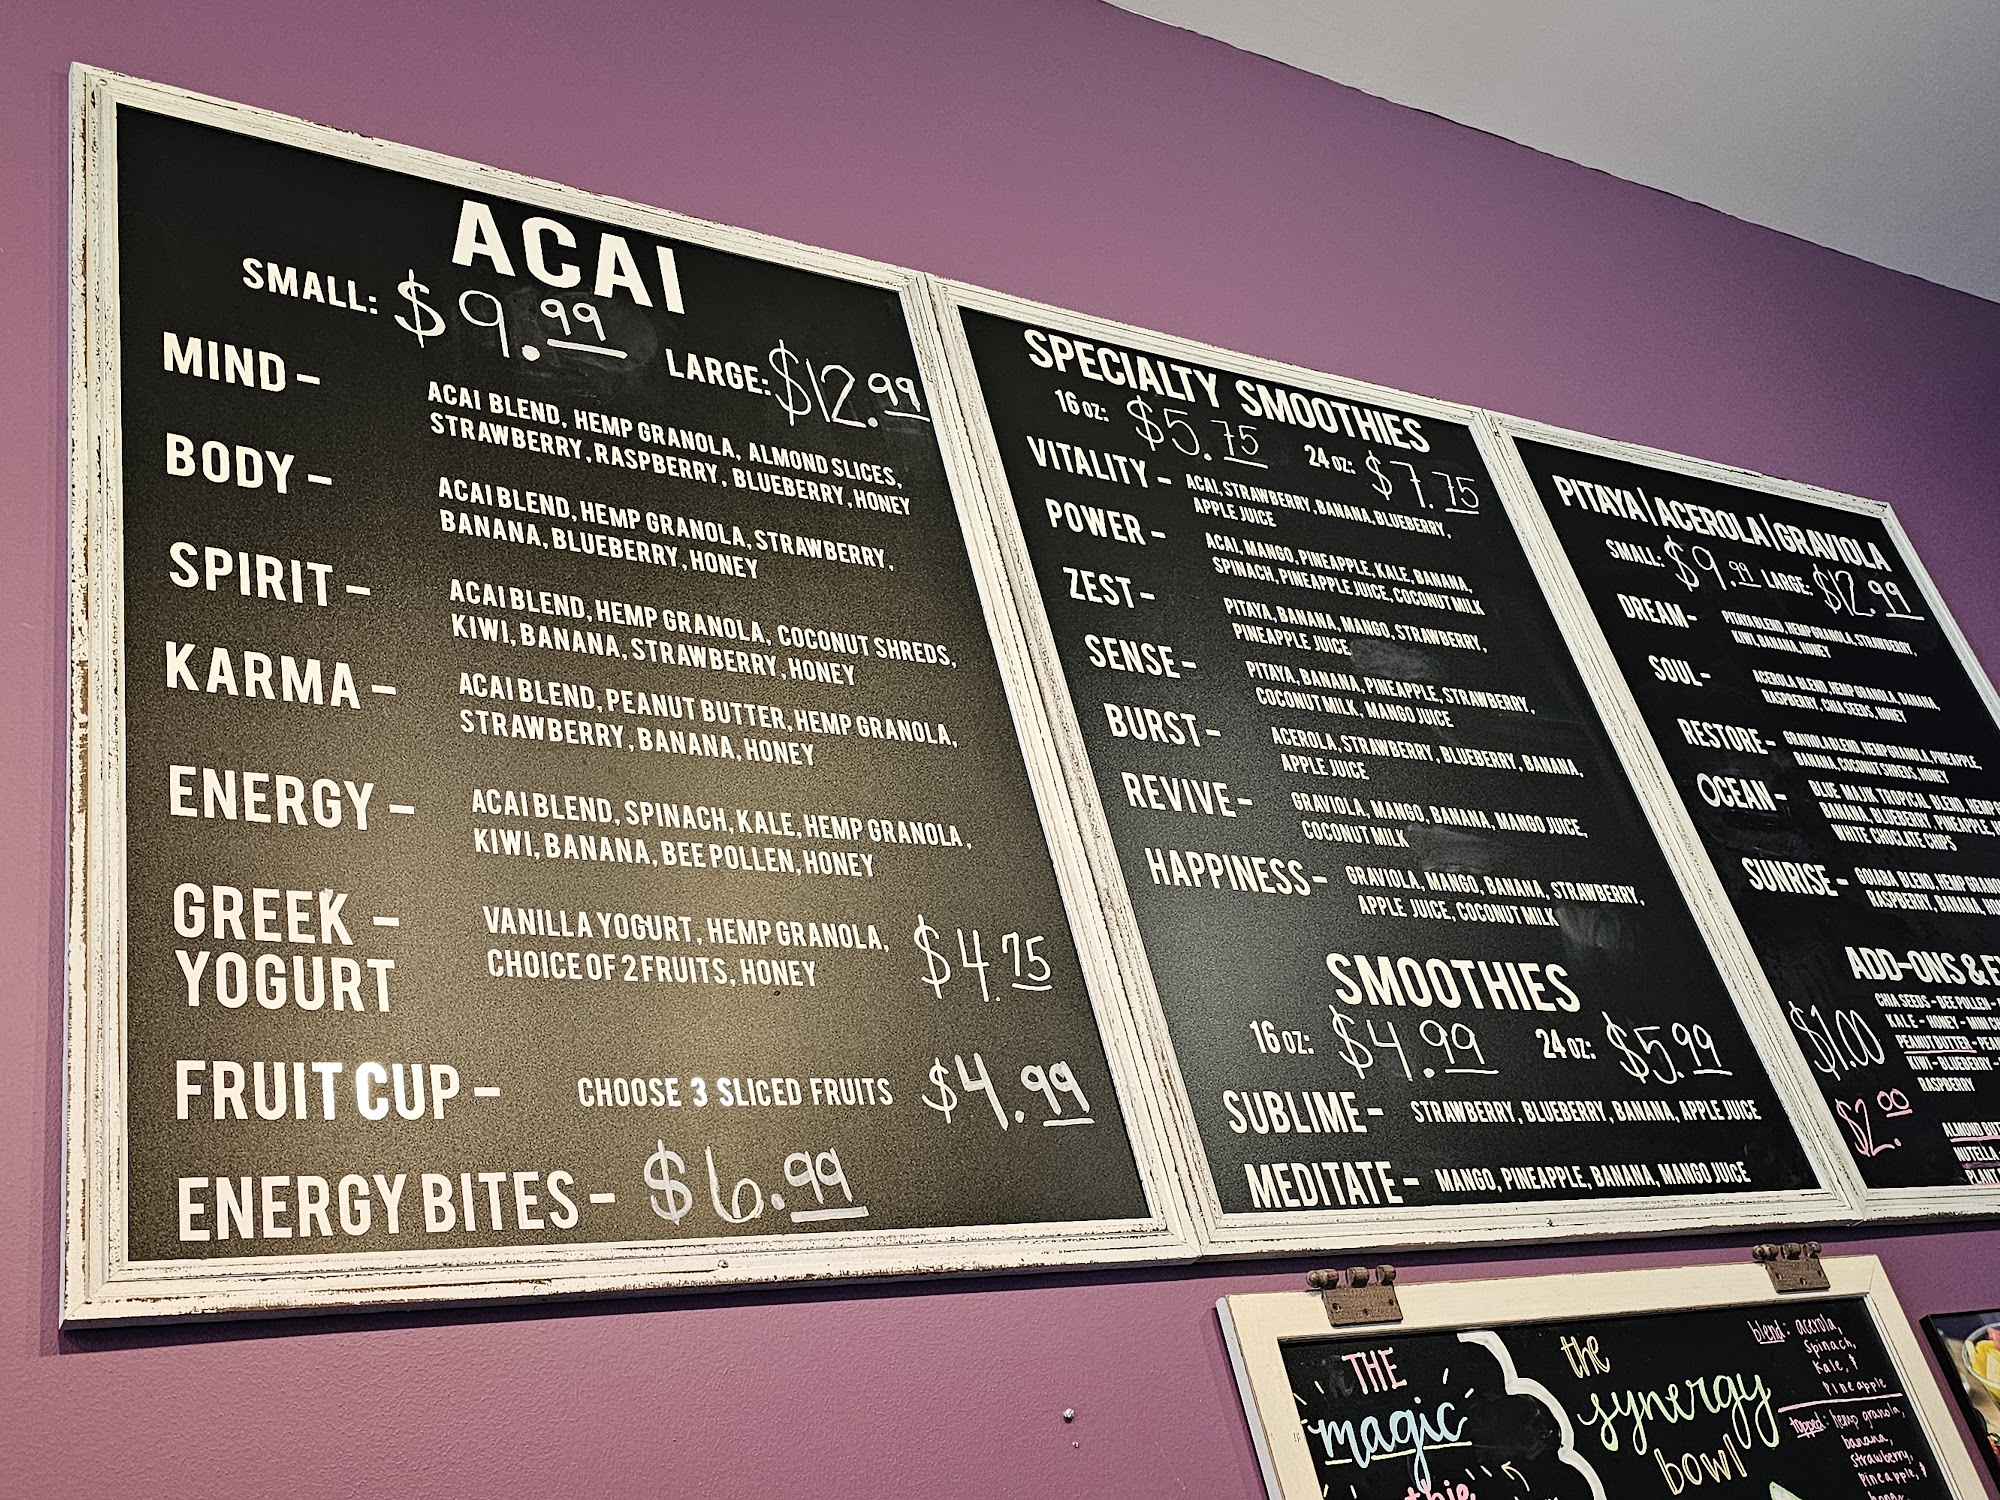 ACAI
SMALL: $9.99 LARGE: $12.99
MIND - ACAI BLEND, HEMP GRANOLA, ALMOND SLICES,
STRAWBERRY, RASPBERRY, BLUEBERRY, HONEY
BODY - ACAI BLEND, HEMP GRANOLA, STRAWBERRY,
BANANA, BLUEBERRY, HONEY
SPIRIT - ACAI BLEND, HEMP GRANOLA, COCONUT SHREDS,
KIWI, BANANA, STRAWBERRY, HONEY
KARMA - ACAI BLEND, PEANUT BUTTER, HEMP GRANOLA,
STRAWBERRY, BANANA, HONEY
ENERGY - ACAI BLEND, SPINACH, KALE, HEMP GRANOLA,
KIWI, BANANA, BEE POLLEN, HONEY
GREEK - VANILLA YOGURT, HEMP GRANOLA, $4.75
YOGURT CHOICE OF 2 FRUITS, HONEY
FRUIT CUP - CHOOSE 3 SLICED FRUITS $4.99
ENERGY BITES - $6.99
SPECIALTY SMOOTHIES
16 OZ: $5.75 24 OZ: $7.75
VITALITY - ACAI, STRAWBERRY, BANANA, BLUEBERRY,
APPLE JUICE
POWER - ACAI, MANGO, PINEAPPLE, KALE, BANANA,
SPINACH, PINEAPPLE JUICE, COCONUT MILK
ZEST - PITAYA, BANANA, MANGO, STRAWBERRY,
PINEAPPLE JUICE
SENSE - PITAYA, BANANA, PINEAPPLE, STRAWBERRY,
COCONUT MILK, MANGO JUICE
BURST - ACEROLA, STRAWBERRY, BLUEBERRY, BANANA,
APPLE JUICE
REVIVE - GRAVIOLA, MANGO, BANANA, MANGO JUICE,
COCONUT MILK
HAPPINESS - GRAVIOLA, MANGO, BANANA, STRAWBERRY,
APPLE JUICE, COCONUT MILK
SMOOTHIES
16 OZ: $4.99 24 OZ: $5.99
SUBLIME - STRAWBERRY, BLUEBERRY, BANANA, APPLE JUICE
MEDITATE - MANGO, PINEAPPLE, BANANA, MANGO JUICE
PITAYA|ACEROLA|GRAVIOLA
SMALL: $9.99 LARGE: $12.99
DREAM - PITAYA BLEND, HEMP GRANOLA, STRAWBERRY,
KIWI, BANANA, HONEY
SOUL - ACEROLA BLEND, HEMP GRANOLA, BANANA,
RASPBERRY, CHIA SEEDS, HONEY
RESTORE - GRAVIOLA BLEND, HEMP GRANOLA, PINEAPPLE,
BANANA, COCONUT SHREDS, HONEY
OCEAN - BLUE MAJIK TROPICAL BLEND, HEMP
BANANA, BLUEBERRY, PINEAPPLE,
WHITE CHOCLATE CHIPS
SUNRISE - GOIABA BLEND, HEMP
RASPBERRY, BANANA,
ADD-ONS &
CHIA SEEDS - BEE POLLEN -
$1.00 KALE - HONEY - MINI
PEANUT BUTTER -
KIWI - BLUEBERRY -
RASPBERRY
$2.00 ALMOND
NUTELLA
THE
magic
the
synergy
bowl
blend: acerola,
spinach,
kale, &
pineapple
topped: hemp granola,
banana,
strawberry,
pineapple, &